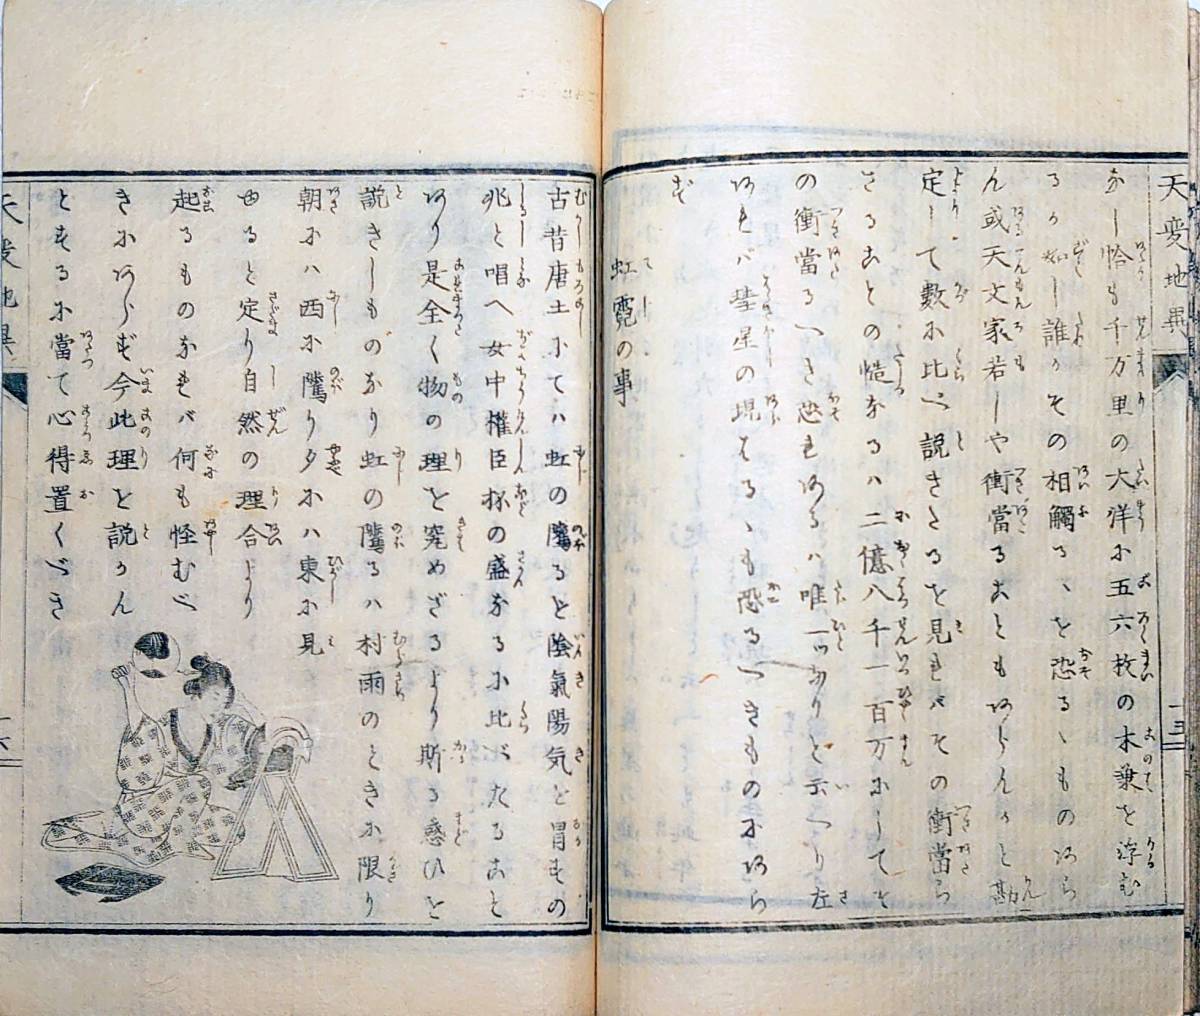 天変地異
十三
なし恰も千万里の大洋に五六枚の木葉を浮む
るが如し誰かその相觸るゝを恐るゝものあら
ん或天文家若しや衝當ることもあらんかと勘
定して數に比べ説きたるを見ればその衝當ら
ざることの慥なるハ二億八千一百万にしてそ
の衝當るべき恐れあるハ唯一ツなりと云へり左
あれバ彗星の現はるゝも恐るべきものにあら
ず
虹霓の事
古昔唐土にてハ虹の鷹ると陰氣陽気を冒すもの
兆と唱へ女中權臣抔の盛なるに比べたること
あり是全く物の理を究めざるより斯る惑ひを
説きしものなり虹の鷹るハ村雨のときに限り
朝にハ西に鷹り夕にハ東に見
ゆると定り自然の理合より
起るものなれバ何も怪むべ
きにあらず今此理を説かん
とするに當て心得置くべき
天変地異